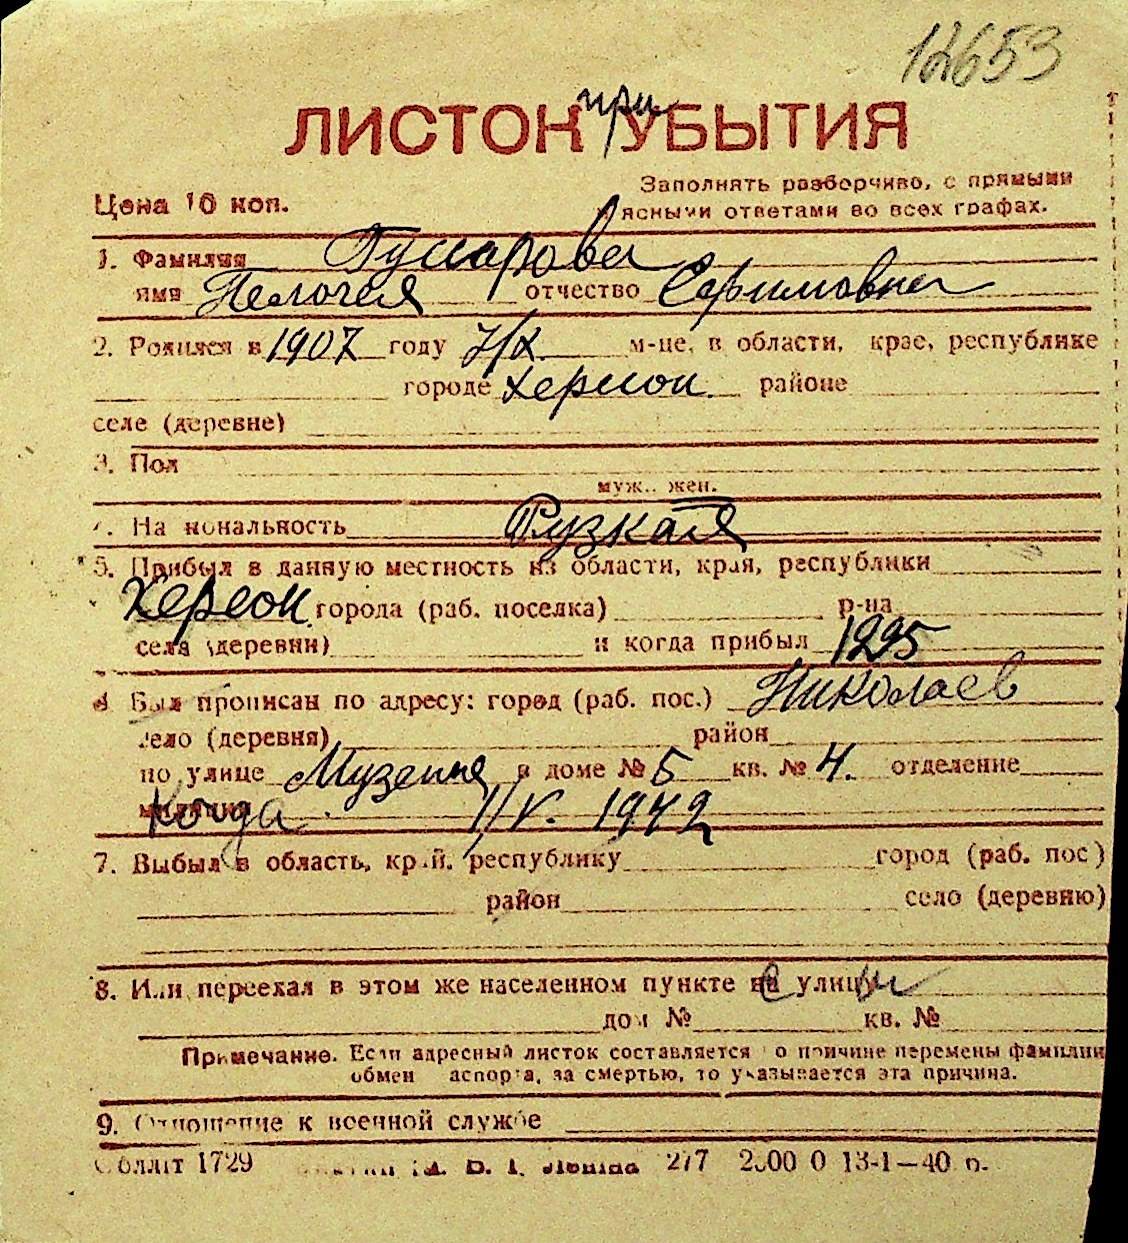 12653
при
ЛИСТОК УБЫТИЯ
Заполнять разборчиво, с прямыми
Цена 10 коп.
и ясными ответами во всех графах.
1. Фамилия Гуссарова
имя Пелогея отчество Сафимовна
2. Родился в 1907 году 7/X м-це, в области, крае, республике
городе Херсон. районе
селе (деревне)
3. Пол
муж.. жен.
На иональность Рузкая
5. Прибыл в данную местность из области, края, республики
Херсон. города (раб. поселка) р-на
села (деревни) и когда прибыл 1925
Был прописан по адресу: город (раб. пос.) Николаев
село (деревня) район
по улице Музейная в доме № 5 кв. № 4. отделение
Когда 1/V. 1942
7. Выбыл в область, край, республику город (раб. пос)
район село (деревню)
8. Или переехал в этом же населенном пункте на с улицу и
дом № кв. №
Примечание. Если адресный листок составляется по причине перемены фамилии
обмен паспорта, за смертью, то указывается эта причина.
9. Отношение к военной службе
Обллiт 1729 В. I. Ленiна 277 13-1—40 р.